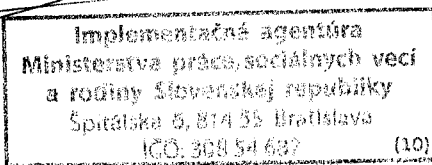 Implementačná agentúra
Ministerstva práce, sociálnych vecí
a rodiny Slovenskej republiky
Špitálska 6, 814 55 Bratislava
IČO: 308 54 687 (10)